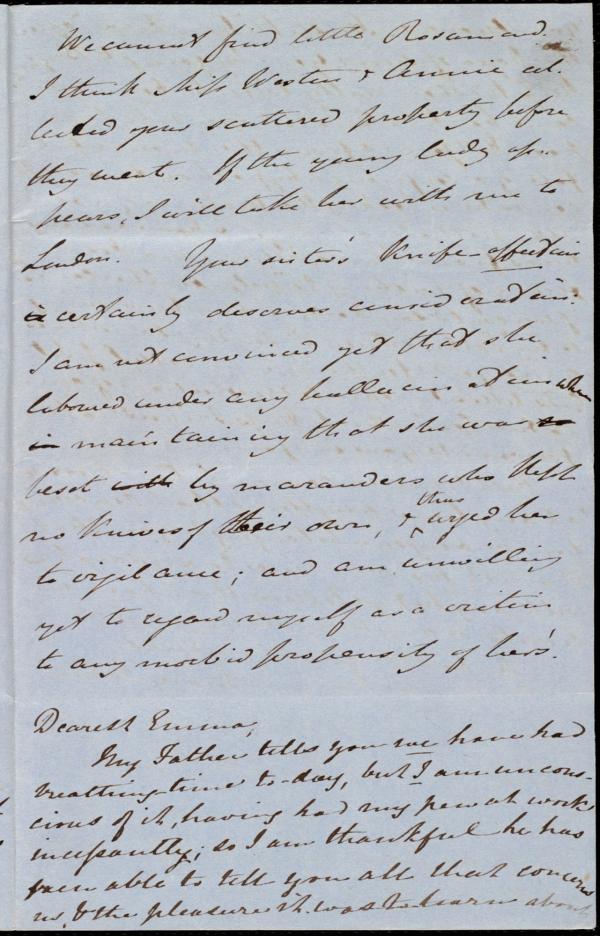 We cannot find little Rosamond.
I think Miss Weston & Annie col-
lected your scattered property before
they went. If the young lady ap-
pears, I will take her with me to
London. Your sister's Knife-affection
certainly deserves consideration:
I am not convinced yet that she
laboured under any hallucination when
in maintaining that she was
beset with by marauders who kept
no Knives of their own, & thus urged her
to vigilance; and am unwilling
yet to regard myself as a victim
to any morbid propensity of her's.
Dearest Emma,
My Father tells you we have had
breathing-time to-day, but I am uncons-
cious of it, having had my pen at work
incessantly; so I am thankful he has
been able to tell you all that concerns
us, & the pleasure it was to learn about